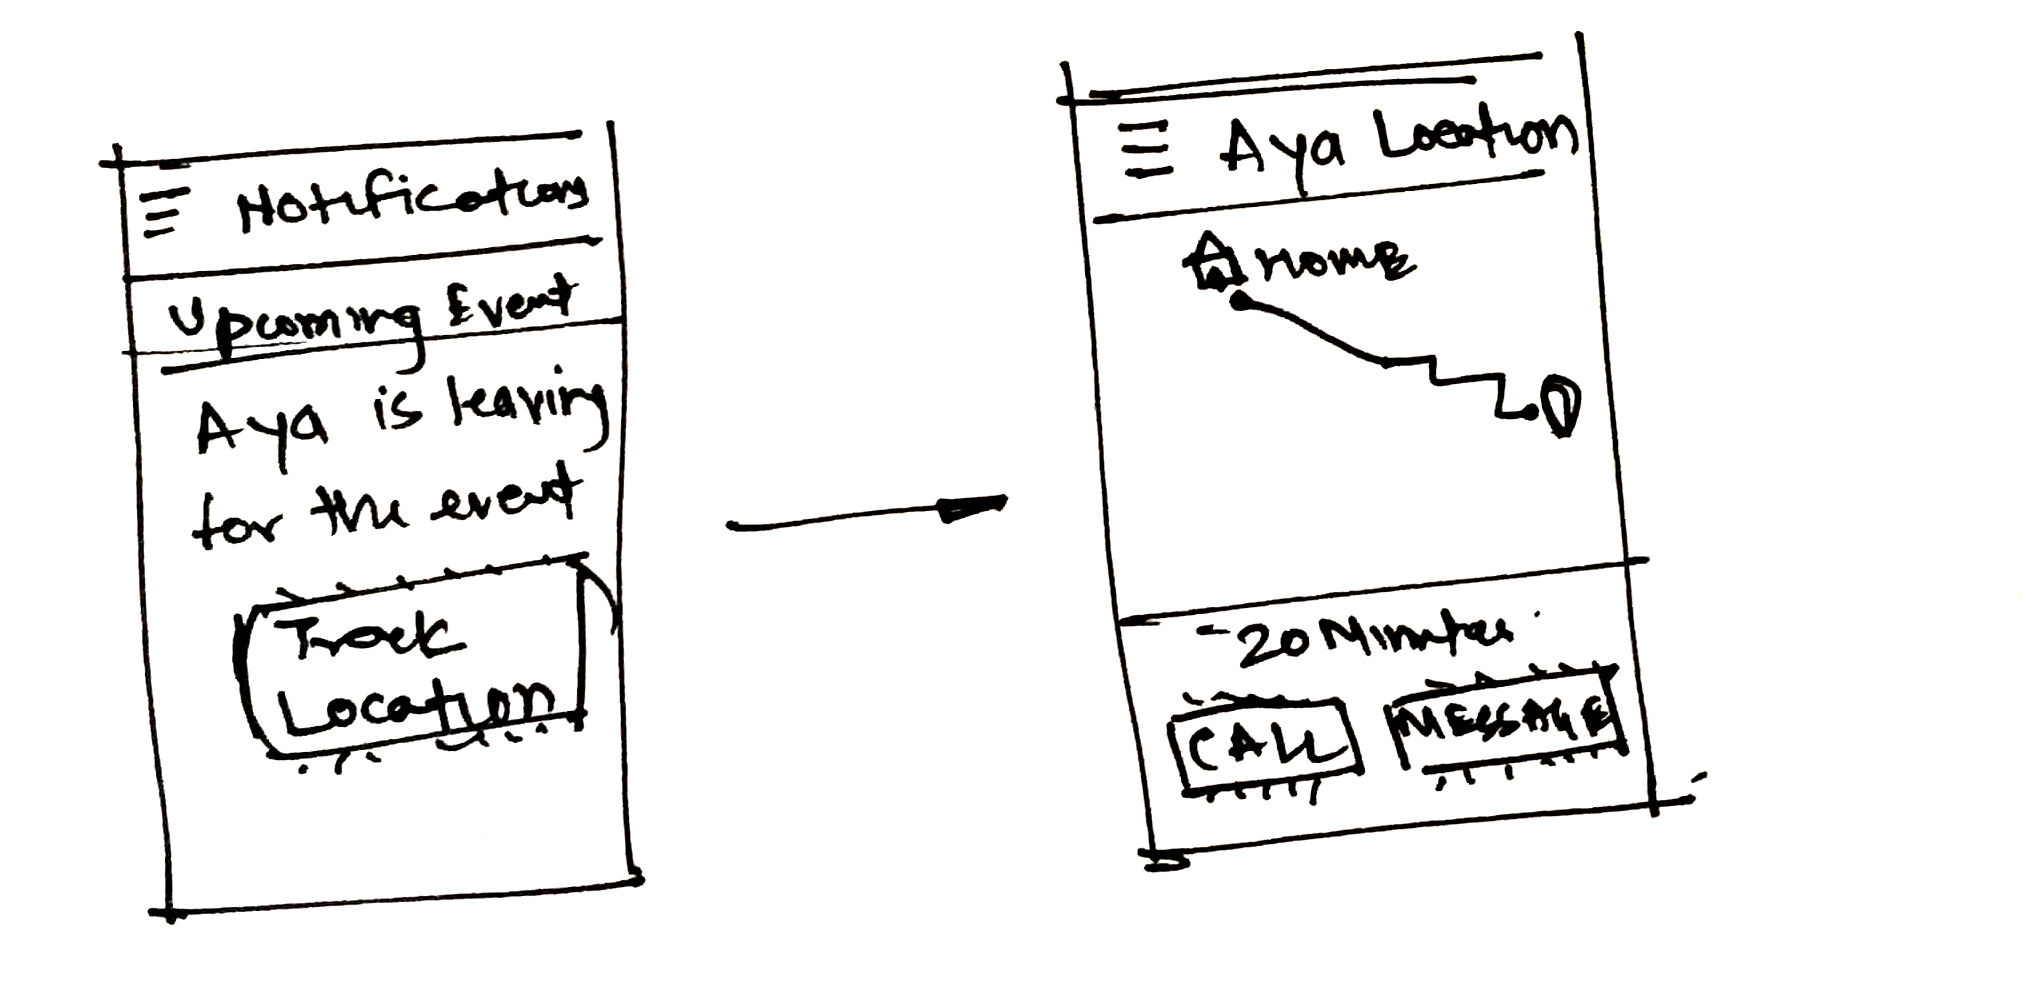 Notifications
Upcoming Event
Aya is leaving
for the event
Track
Location
Aya Location
HOME
~20 Minutes
CALL
MESSAGE